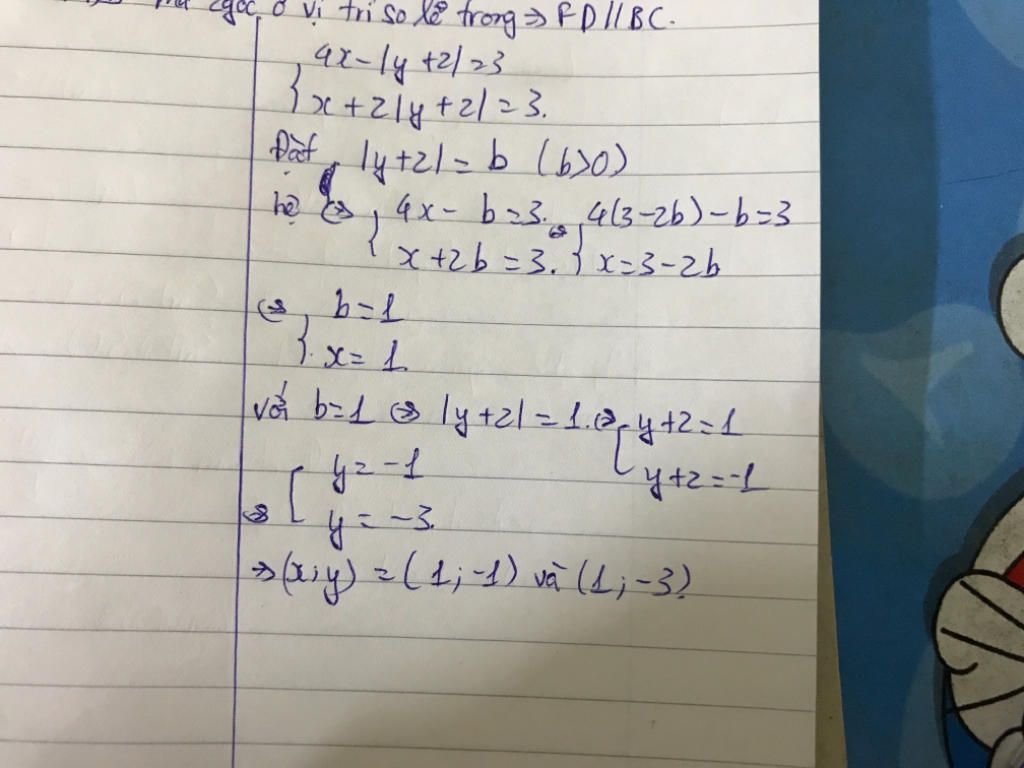 góc ở vị trí so le trong ⇒ FD//BC.
{ 4x - |y+2| = 3
x + 2|y+2| = 3.
Đặt |y+2| = b (b>0)
hệ ⇔ { 4x - b = 3. ⇔ { 4(3-2b) - b = 3
x + 2b = 3. x = 3 - 2b
⇔ { b = 1
x = 1.
với b=1 ⇔ |y+2| = 1. ⇔ [ y+2 = 1
y+2 = -1
⇔ [ y = -1
y = -3.
⇒ (x;y) = (1;-1) và (1;-3).